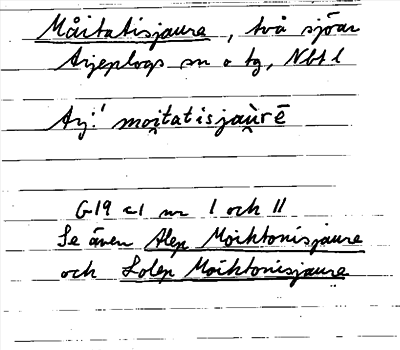 Måitatisjaure, två sjöar
Arjeplogs sn o tg, Nbt l
Arj: moi̯tatisjau̯rē
G19 c1 nr 1 och 11
Se även Alep Moiktonisjaure
och Lolep Moiktonisjaure